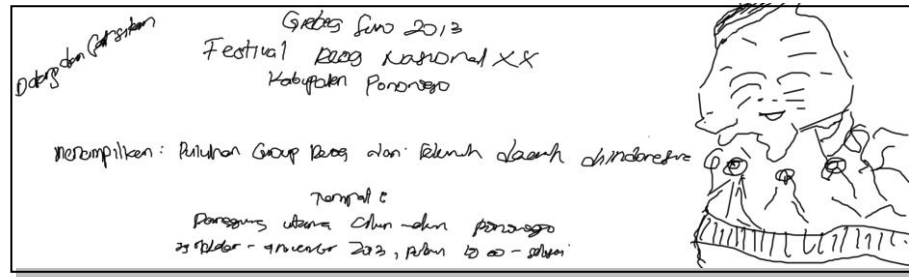 Datang dan Saksikan
Grebeg Suro 2013
Festival Reog Nasional XX
Kabupaten Ponorogo
Menampilkan: Puluhan Group Reog dari Seluruh daerah diindonesia
Tempat :
Panggung utama alun-alun ponorogo
november 2013, pukul - selesai